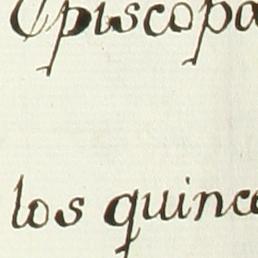 Episcopa
los quince